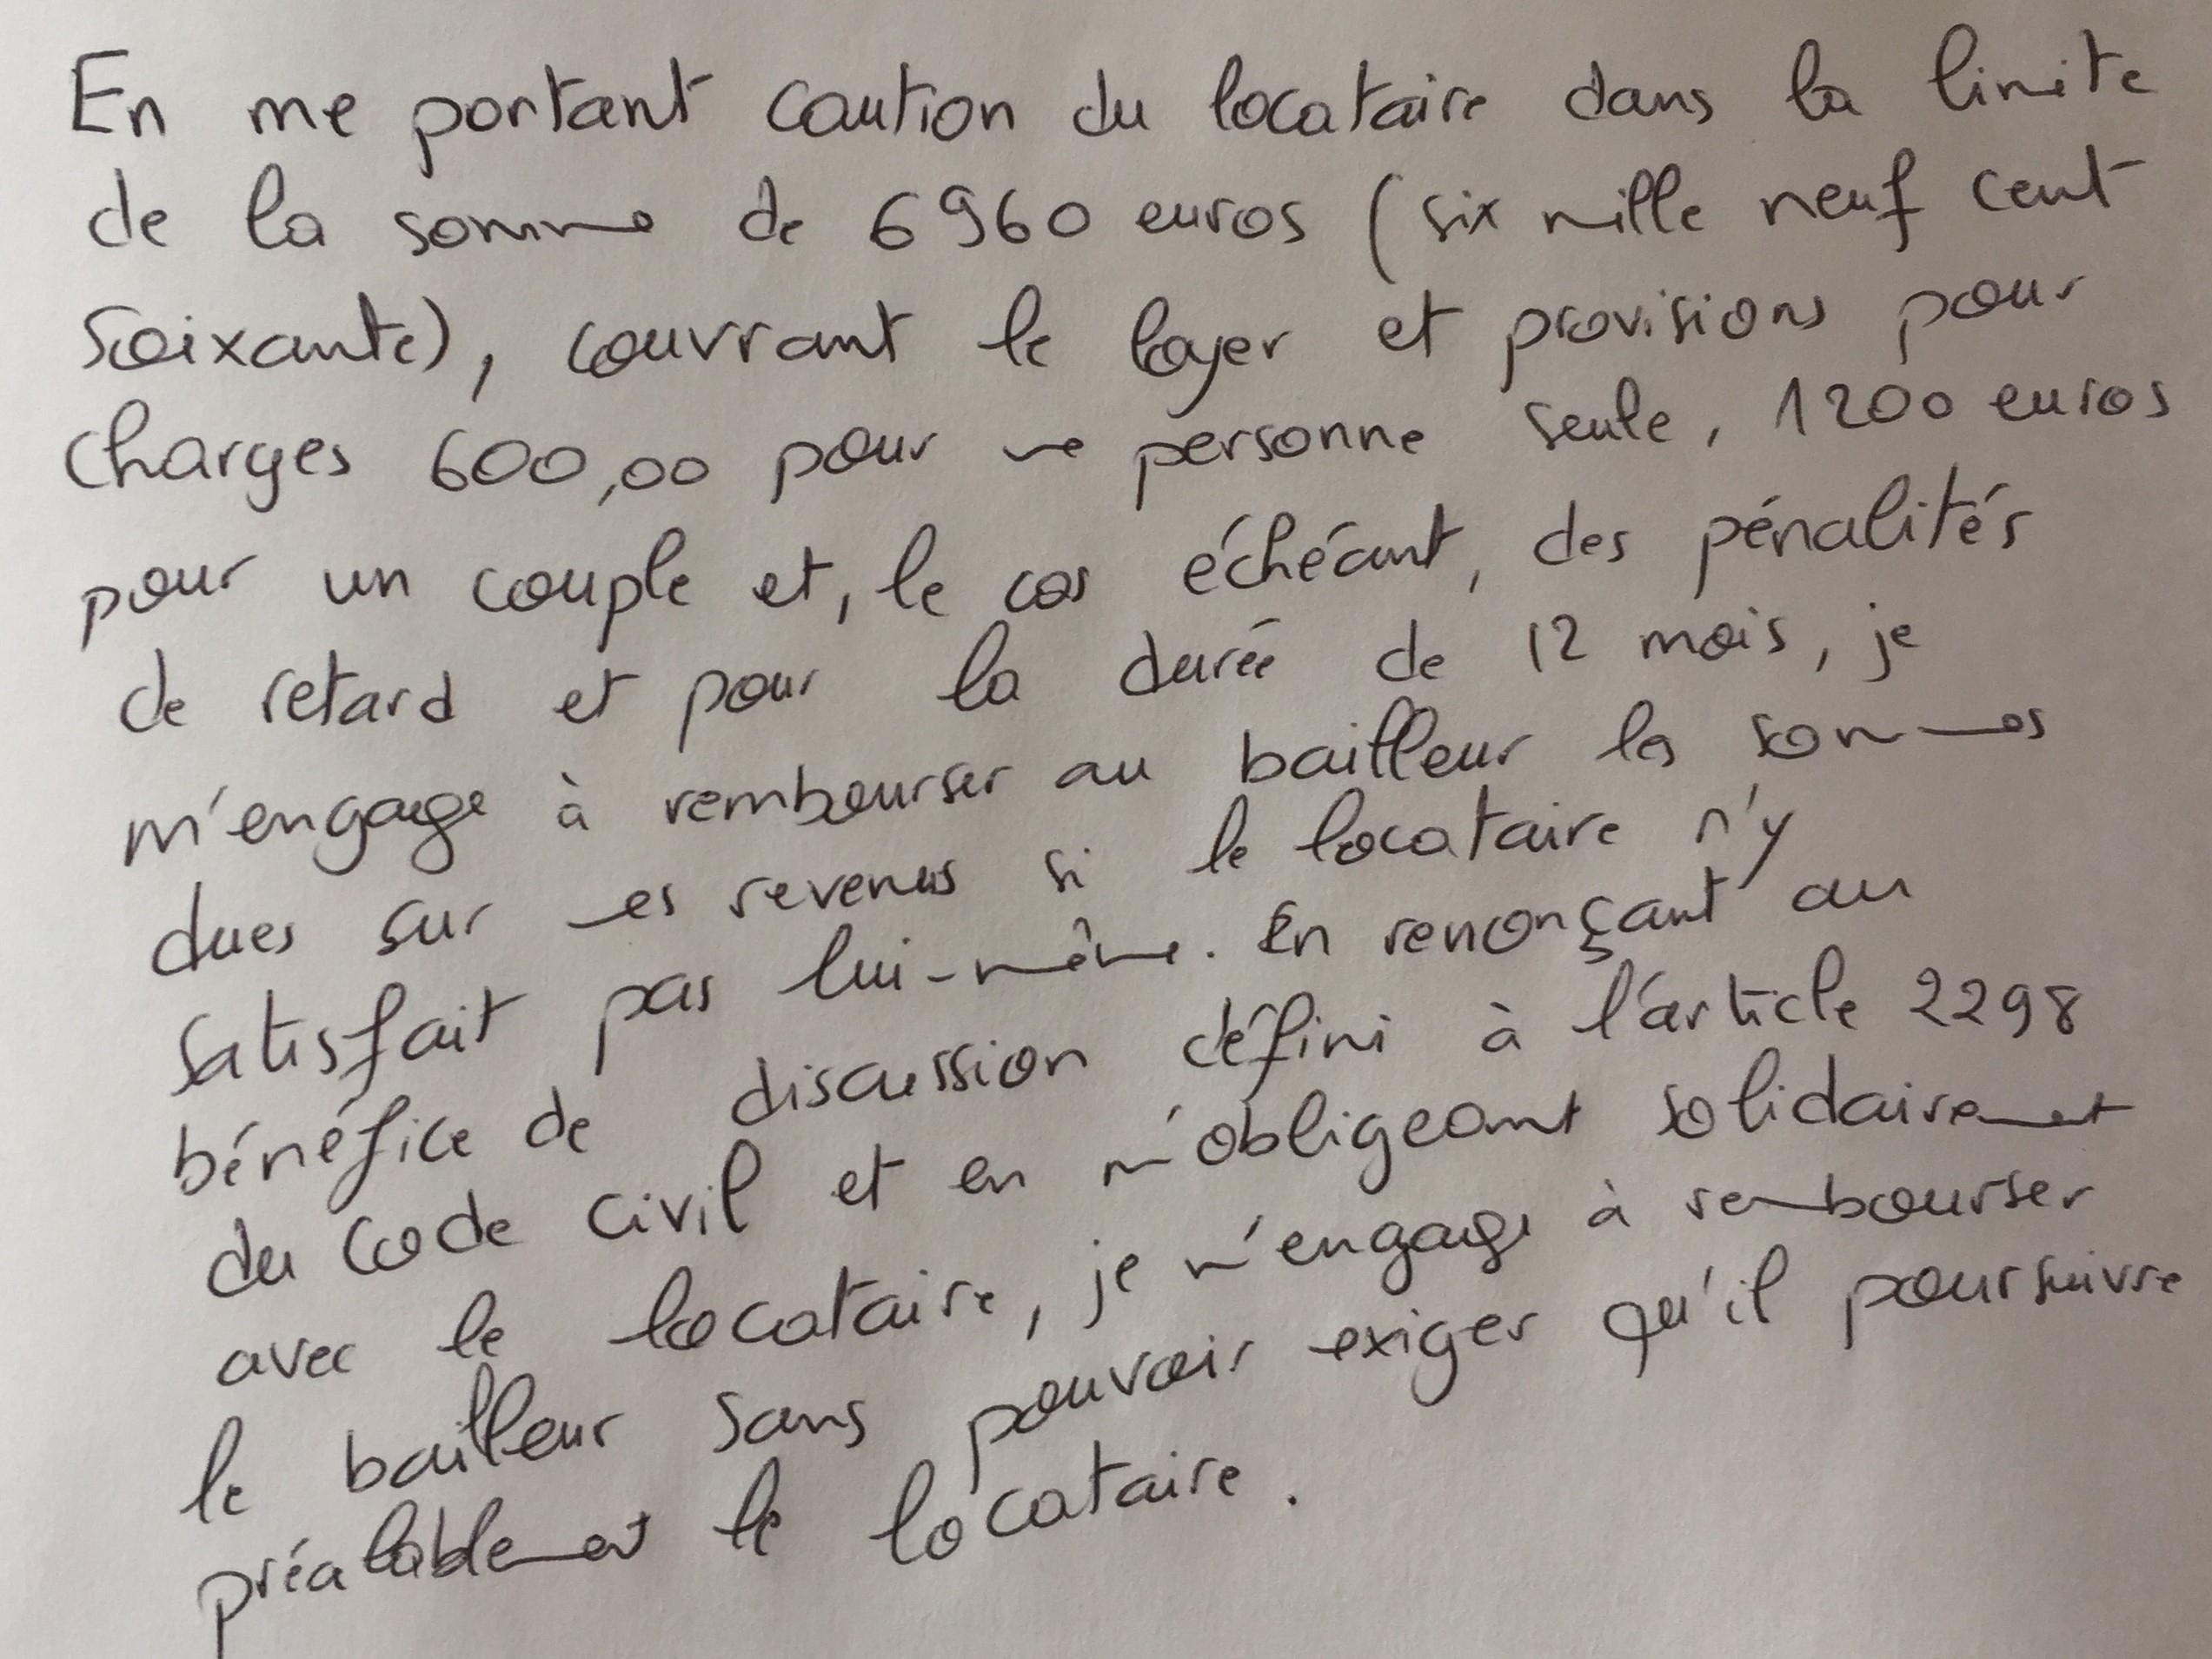 En me portant caution du locataire dans la limite
de la somme de 6960 euros (six mille neuf cent
soixante), couvrant le loyer et provisions pour
charges 600,00 pour une personne seule, 1200 euros
pour un couple et, le cas échéant, des pénalités
de retard et pour la durée de 12 mois, je
m'engage à rembourser au bailleur les sommes
dues sur mes revenus si le locataire n'y
satisfait pas lui-même. En renonçant au
bénéfice de discussion défini à l'article 2298
du Code civil et en m'obligeant solidairement
avec le locataire, je m'engage à rembourser
le bailleur sans pouvoir exiger qu'il poursuivre
préalablement le locataire.